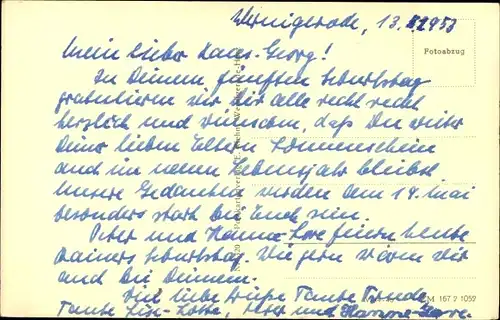 Wernigerode, 13. 5. 1953
Fotoabzug
Mein lieber Hans-Georg!
Zu Deinem fünften Geburtstag
gratulieren wir Dir alle recht recht
herzlich und wünschen, daß Du weiter
Deiner lieben Eltern Sonnenschein
auch im neuen Lebensjahr bleibst.
Unsere Gedanken werden am 14. Mai
besonders stark bei Euch sein.
Peter und Hanna-Lore feiern heute
Rainers Geburtstag. Wie gern wären wir
auch bei Deinem.
Viel liebe Grüße Tante Friedel
Tante Lise-Lotte, Peter und Hanna-Lore.
M 167 2 1052